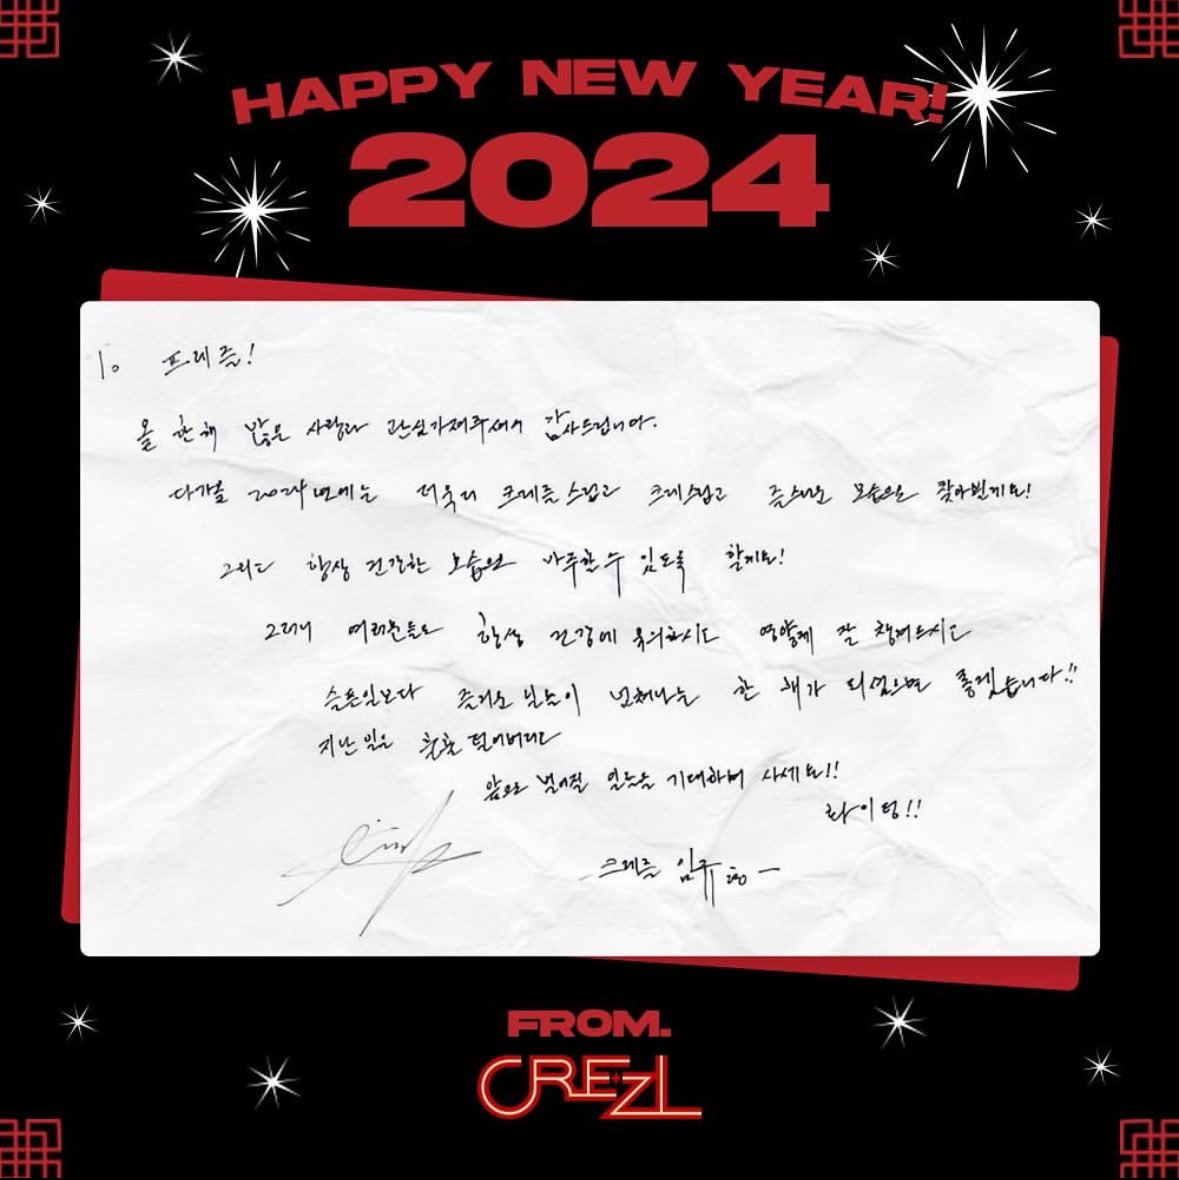 HAPPY NEW YEAR!
2024
To 프레즐!
올 한해 많은 사랑과 관심가져주셔서 감사드립니다.
다가올 2024년에는 더욱더 크레즐스럽고 크레스럽고 즐스러운 모습으로 찾아뵐게요!
그리고 항상 건강한 모습으로 마주할 수 있도록 할게요!
그러니 여러분들도 항상 건강에 유의하시고 영양제 잘 챙겨드시고
슬픈일보다 즐거운 일들이 넘쳐나는 한 해가 되셨으면 좋겠습니다!!
지난 일은 훌훌 털어버리고
앞으로 벌어질 일들을 기대하며 사세요!!
화이팅!!
크레즐 임규형 -
FROM.
CREZL